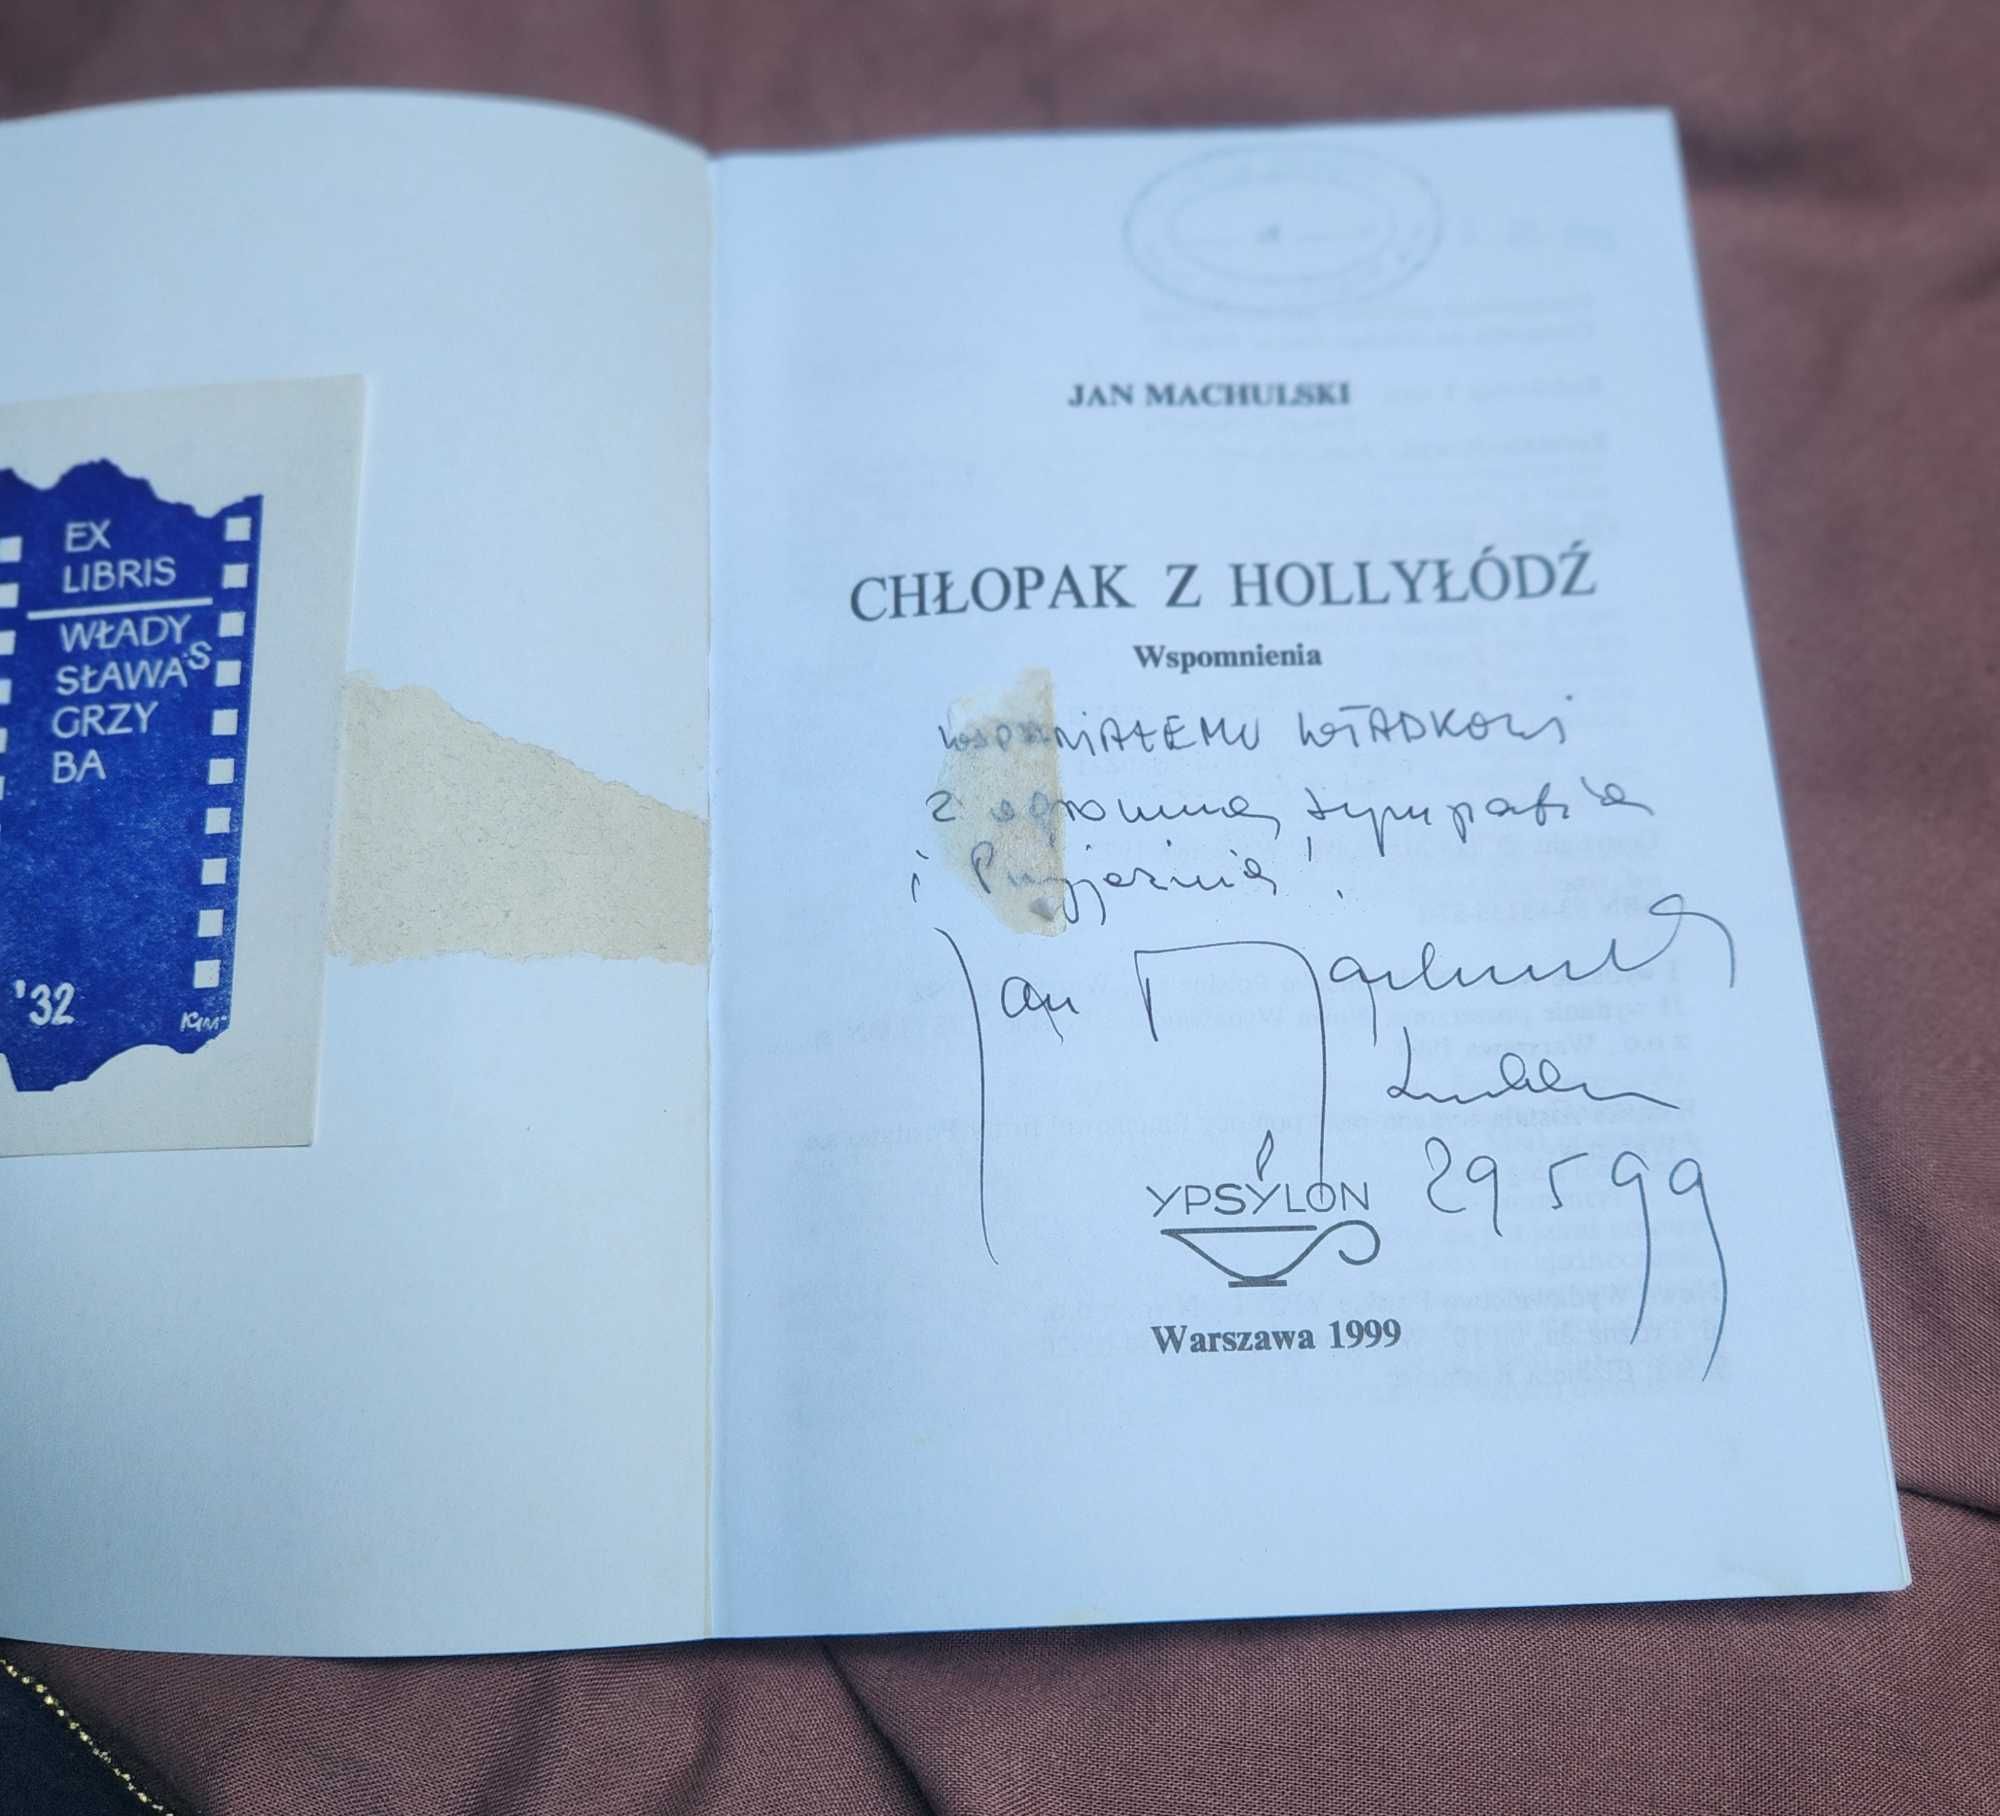 EX
LIBRIS
WŁADY
SŁAWA S
GRZY
BA
'32
JAN MACHULSKI
CHŁOPAK Z HOLLYŁÓDŹ
Wspomnienia
WSPANIAŁEMU WŁADKOWI
z ogromną sympatią
i Przyjaźnią!
Jan Machulski
Lublin
29 5 99
YPSYLON
Warszawa 1999